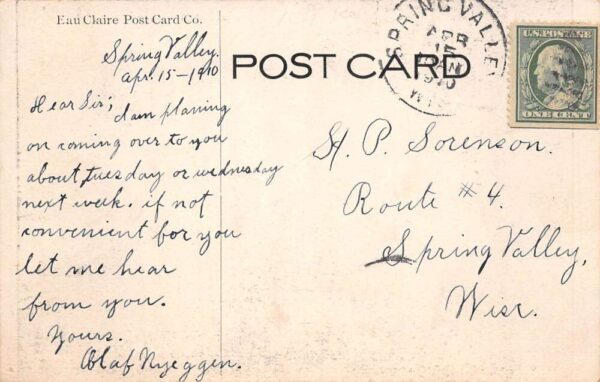 Eau Claire Post Card Co.
POST CARD
Spring Valley.
Apr. 15-1910
Hear Sir;
I am planing
on coming over to you
about, tuesday or wednesday
next week. if not
convenient for you
let me hear
from you.
Yours.
Olaf Nyeggen.
SPRING VALLEY
APR
15
1910
WIS
U.S. POSTAGE
ONE CENT
H. P. Sorenson.
Route #4.
Spring Valley,
Wisc.